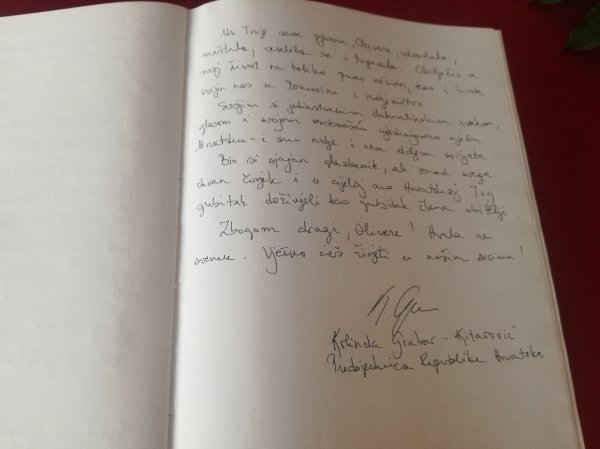 Uz Tvoje sam pjesme, Olivere, odrastala,
maštala, veselila se i tugovala. Obilježio si
moj život na toliko puno načina, kao i živote
sviju nas u Domovini i iseljeništvu.
Svojim si jedinstvenim dalmatinskim
glasom i svojom osobnošću ujedinjavao cijelu
Hrvatsku - i onu ovdje i onu diljem svijeta.
Bio si sjajan glazbenik, ali iznad svega
divan čovjek i u cijeloj smo Hrvatskoj Tvoj
gubitak doživjeli kao gubitak člana obitelji.
Zbogom dragi, Olivere! Hvala na
svemu. Vječno ćeš živjeti u našim srcima!
Kolinda Grabar-Kitarović
Predsjednica Republike Hrvatske